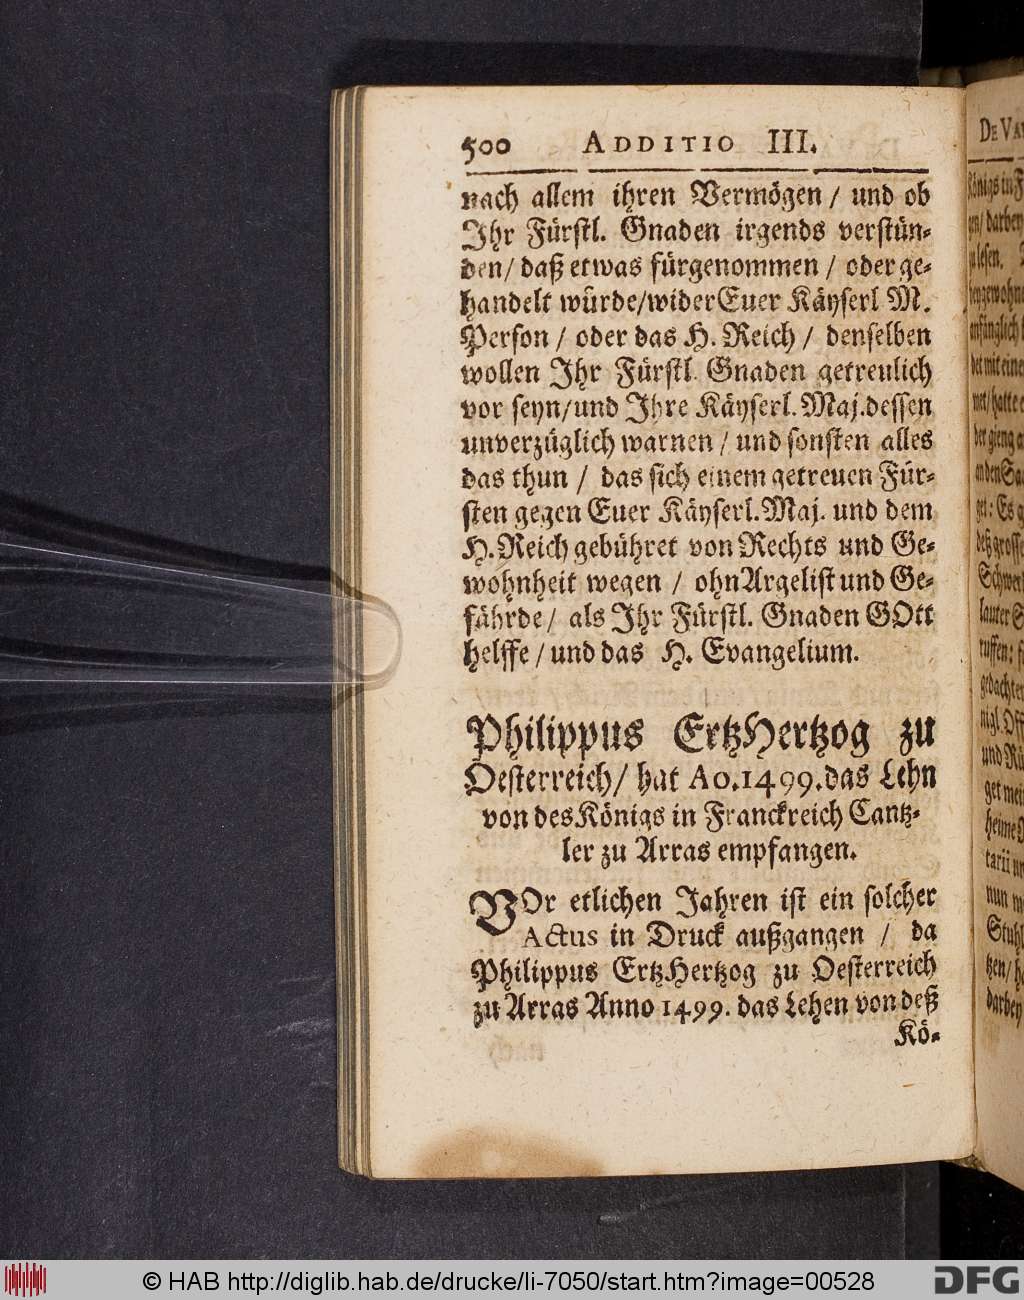 500 ADDITIO III.
nach allem ihren Vermögen / und ob
Ihr Fürstl. Gnaden irgends verstün-
den/ daß etwas fürgenommen / oder ge-
handelt würde/wider Euer Käyserl M.
Person / oder das H. Reich / denselben
wollen Ihr Fürstl. Gnaden getreulich
vor seyn/und Ihre Käyserl. Maj. dessen
unverzüglich warnen / und sonsten alles
das thun / das sich einem getreuen Für-
sten gegen Euer Käyserl. Maj. und dem
H. Reich gebühret von Rechts und Ge-
wohnheit wegen / ohn Argelist und Ge-
fährde / als Ihr Fürstl. Gnaden GOtt
helffe / und das H. Evangelium.
Philippus ErtzHertzog zu
Oesterreich/ hat Ao. 1499. das Lehn
von des Königs in Franckreich Cantz-
ler zu Arras empfangen.
VOr etlichen Jahren ist ein solcher
Actus in Druck außgangen / da
Philippus ErtzHertzog zu Oesterreich
zu Arras Anno 1499. das Lehen von deß
Kö-
DE VA
Königs in F
gen/ darbey
zu lesen.
anfänglich
det mit eine
met/ hatte
der gieng a
an den Sa
get: Es g
deß grosse
Schwer
lauter S
ruffen: f
gedachter
nigl. Off
und Rü
get mei
heime
tarii
nun m
Stuhl
tzen/ h
darbey
© HAB http://diglib.hab.de/drucke/li-7050/start.htm?image=00528
DFG